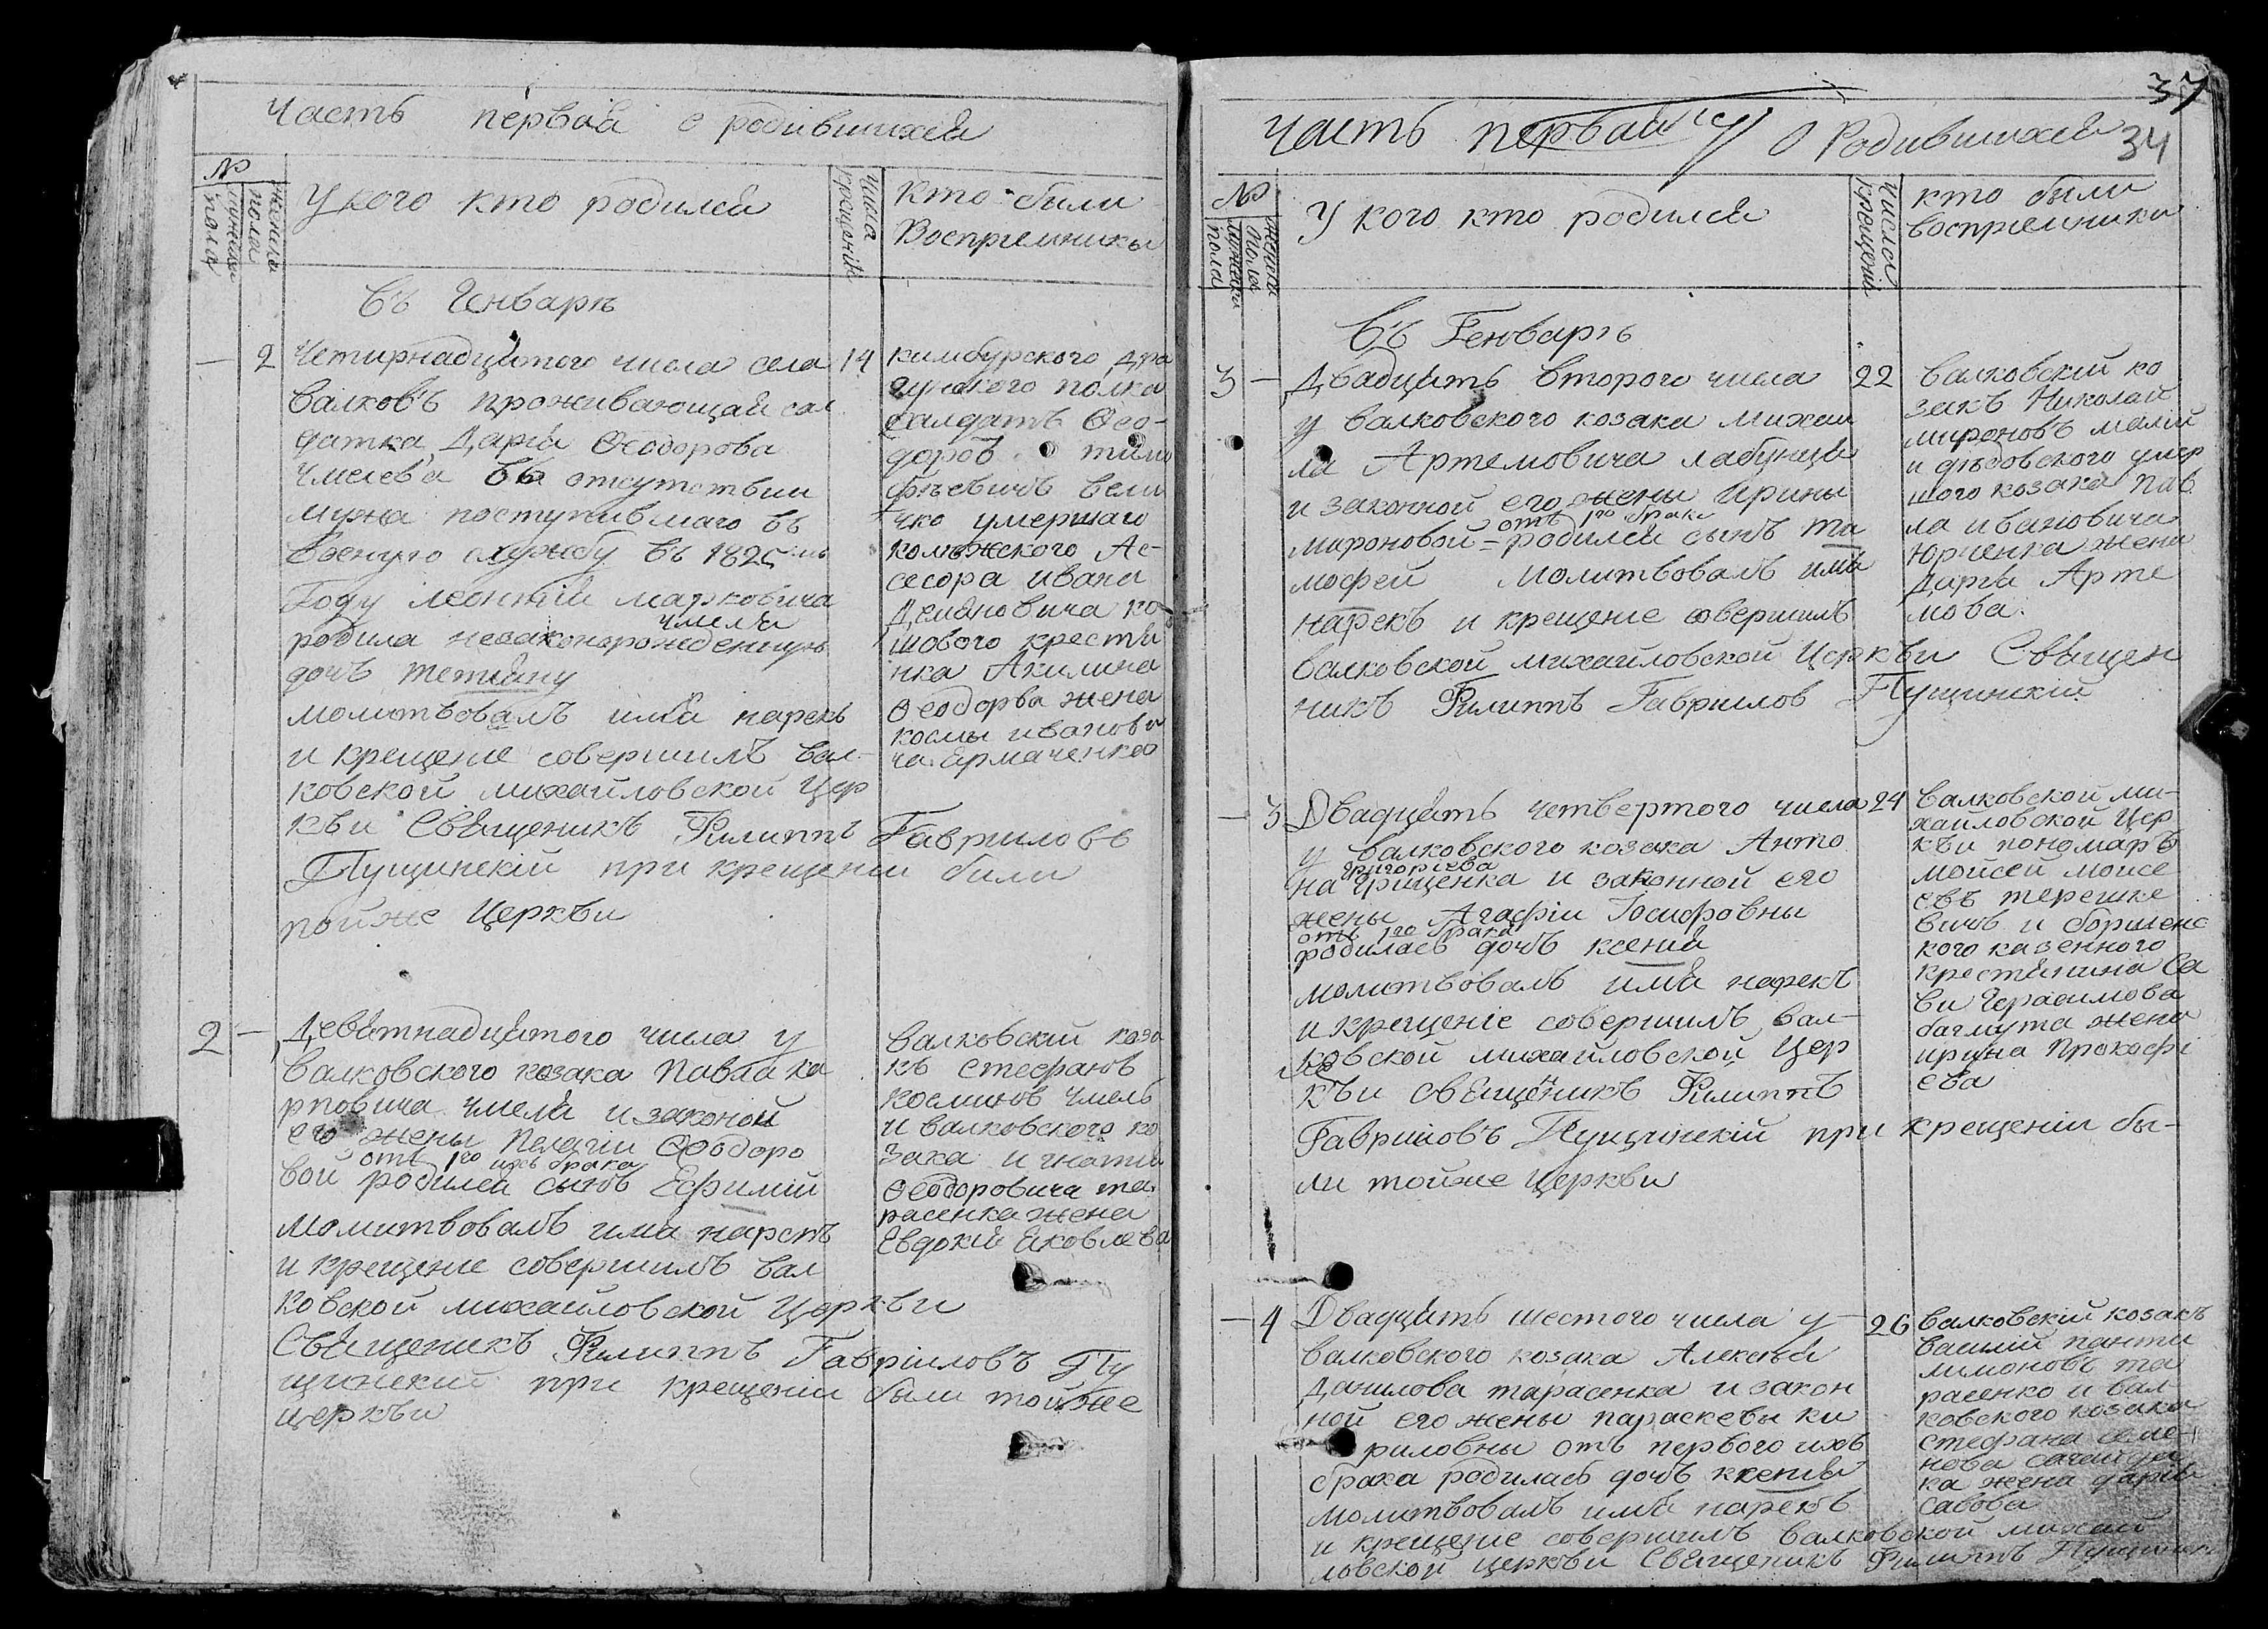 Часть первая о родившихся
№
женска пола
мужеска пола
У кого кто родился
числа крещенія
Кто были
Воспріемники
Въ Генваръ
— 2 Четирнадцятого числа села 14
Валковъ проживающая сал
датка Дарія Ѳеодорова
Чмелева въ отсутствии
мужа поступившаго въ
военную службу въ 1825
Году леонтія марковича
чмеля
родила незаконорожденную
дочъ тетяну
молитвовалъ имя нарекъ
и крещеніе совершилъ вал-
ковской михайловской Цер
кви Священикъ Филиппъ Гавриловъ
Пущинскій при крещеніи били
тойже Церкви
кимбурского Дра
гунского полка
салдатъ Ѳео-
доровъ тимо
фѣевичъ вели
чко умершаго
колѣжского Ас-
сесора ивана
Демяновича ко-
шового крестя
нка Акилина
Ѳеодорва жена
космы иванови
ча Ермаченка
2 — Девятнадцятого числа у
валковского козака Павла ка
рповича чмеля и законой
его жены Пелагіи Ѳеодоро
отъ 1го ихъ брака
вой родился сынъ Ефимій
молитвовалъ имя нарекъ
и крещеніе совершилъ вал
ковской михайловской Церкви
Священикъ Филиппъ Гавріиловъ Пу
щинскій при крещеніи были тойже
церкви
валковскій коза
къ стефанъ
косминъ Чмель
и валковского ко
зака игнатія
Ѳеодоровича та
расенка жена
Евдокія Яковлева
37
34
Часть первая о Родившихся
№
женска пола
мужеска пола
У кого кто родился
числа крещеній
кто были
воспріемники
Въ Генваръ
3 — Двадцять второго числа 22
у валковского козака михаи
ла Артемовича лабунця
и законной его жены Ирины
отъ 1го брака
мироновой = родился сынъ ти
мофей молитвовалъ имя
нарекъ и крещеніе совершилъ
валковской михайловской Церкви Священ
никъ Филиппъ Гавриилов Пущинскій
валковскій ко
закъ Николай
мироновъ малій
и дѣдовского умер
шого козака Пав
ла ивановича
Юрченка жена
Дарія Арте
мова.
— 3 Двадцать четвертого числа 24
у валковского козака Анто
григоріева
на грищенка и законной его
жены Агафіи Іосифовны
отъ 1го брака
родилась дочъ ксенія
молитвовалъ имя нарекъ
и крещеніе совершилъ вал-
ковской михайловской Цер
кви священикъ Филиппъ
Гавриловъ Пущинскій при крещеніи бы-
ли тойже церкви
валковской ми-
хайловской Цер
кви пономаръ
мойсей мойсе
евъ терешке
вичъ и боршенс
кого казенного
крестянина Са
ви Герасимова
багмута жена
ирина Прокофі
ева
— 4 Двадцять шестого числа у 26
валковского козака Алексѣя
Данилова тарасенка и закон
ной его жены параскевы ки
риловны отъ первого ихъ
брака родилась дочъ ксенія
молитвовалъ имя нарекъ
и крещеніе совершилъ валковской михай
ловской церкви Священикъ Филиппъ Пущинскі
валковскій козакъ
василій панти
лимоновъ та
расенко и вал-
ковского козака
стефана семе-
нова
ка жена дарія
савова